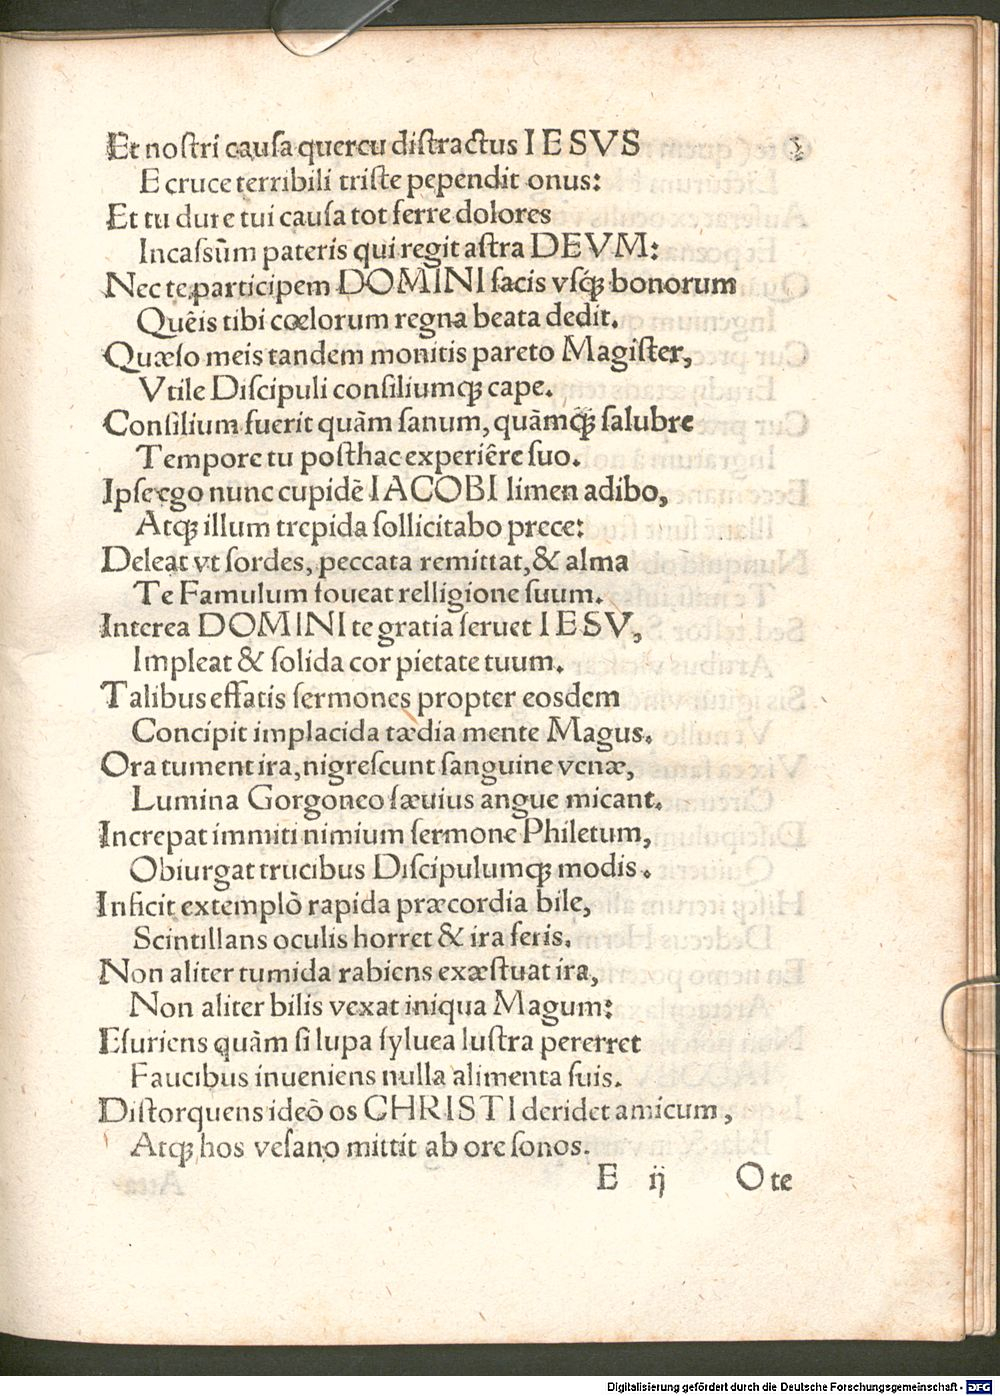 Et nostri causa quercu distractus IESVS
E cruce terribili triste pependit onus:
Et tu dure tui causa tot ferre dolores
Incassũm pateris qui regit astra DEVM:
Nec te participem DOMINI facis vsq́ꝫ bonorum
Quêis tibi cœlorum regna beata dedit.
Quæso meis tandem monitis pareto Magister,
Vtile Discipuli consiliumqꝫ cape.
Consilium fuerit quàm sanum, quàmqꝫ salubre
Tempore tu posthac experiêre suo.
Ipse ergo nunc cupidè IACOBI limen adibo,
Atqꝫ illum trepida sollicitabo prece:
Deleat vt sordes, peccata remittat, & alma
Te Famulum foueat relligione suum.
Interea DOMINI te gratia seruet IESV,
Impleat & solida cor pietate tuum.
Talibus effatis sermones propter eosdem
Concipit implacida tædia mente Magus.
Ora tument ira, nigrescunt sanguine venæ,
Lumina Gorgoneo sæuius angue micant.
Increpat immiti nimium sermone Philetum,
Obiurgat trucibus Discipulumqꝫ modis.
Inficit extemplò rapida præcordia bile,
Scintillans oculis horret & ira feris.
Non aliter tumida rabiens exæstuat ira,
Non aliter bilis vexat iniqua Magum:
Esuriens quàm si lupa syluea lustra pererret
Faucibus inueniens nulla alimenta suis.
Distorquens ideò os CHRISTI deridet amicum,
Atqꝫ hos vesano mittit ab ore sonos.
E ij O te
Digitalisierung gefördert durch die Deutsche Forschungsgemeinschaft - DFG